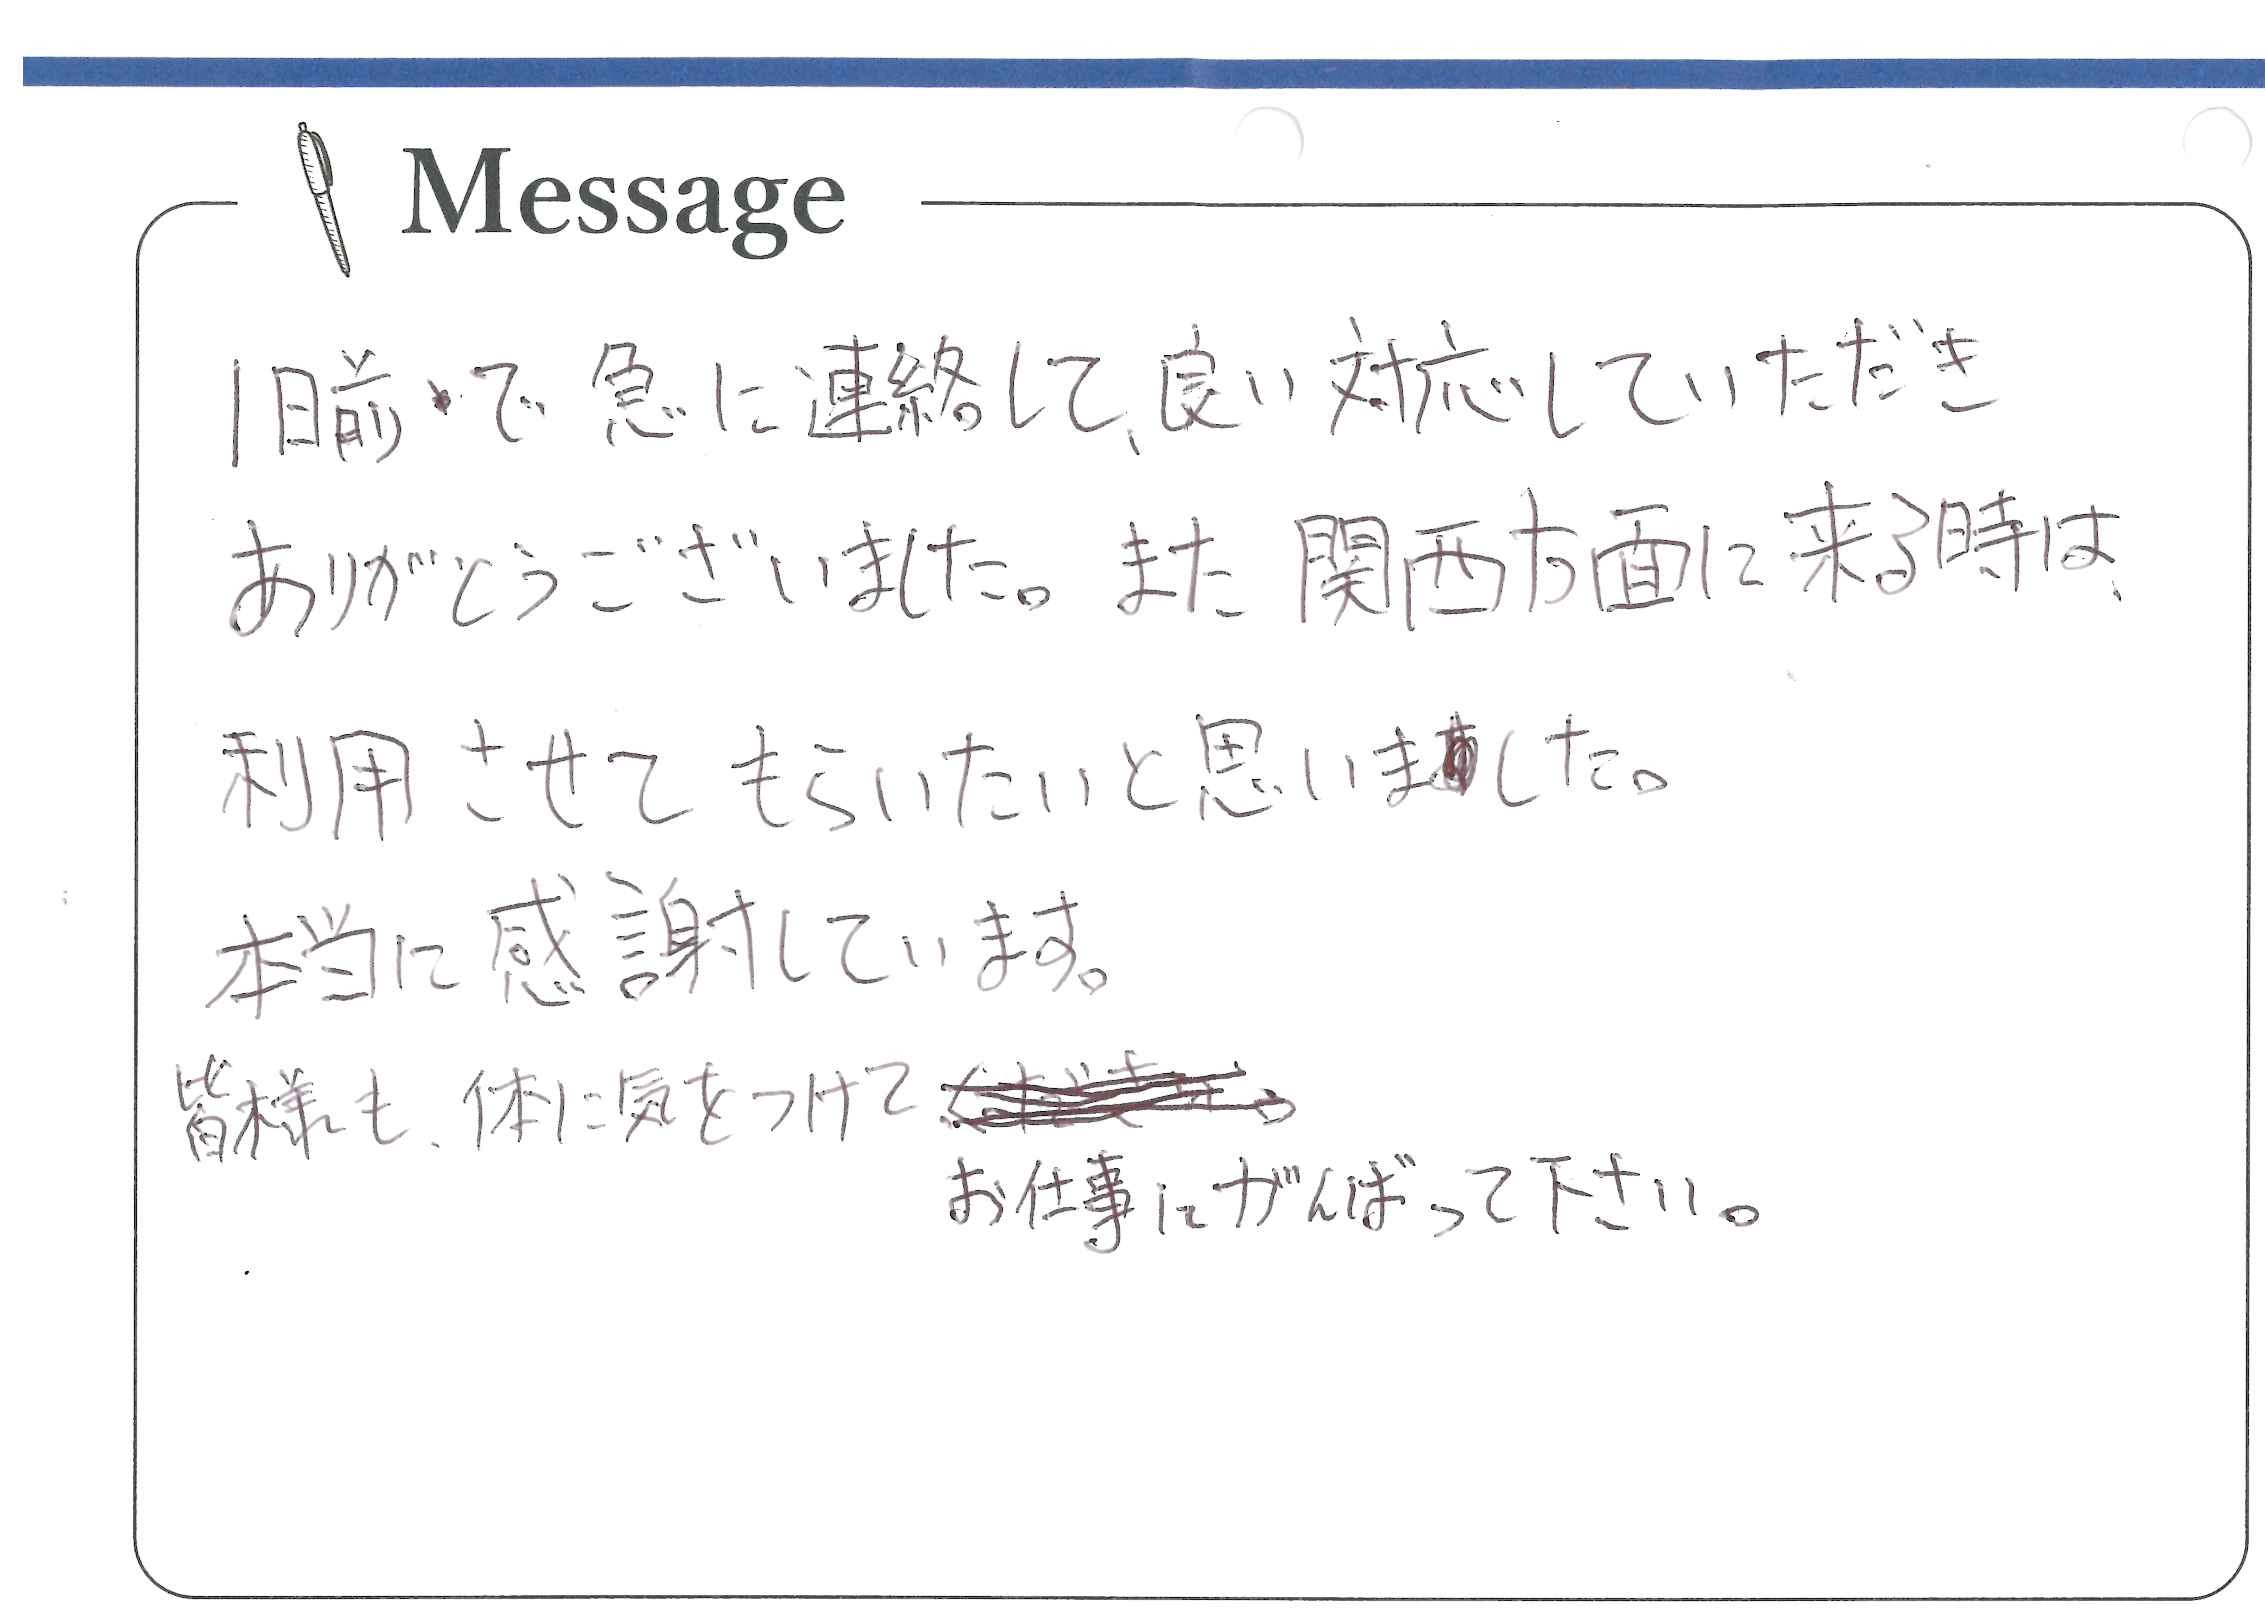 Message
1日前で急に連絡して、良い対応していただき
ありがとうございました。また関西方面に来る時は、
利用させてもらいたいと思いました。
本当に感謝しています。
皆様も、体に気をつけて
お仕事にがんばって下さい。